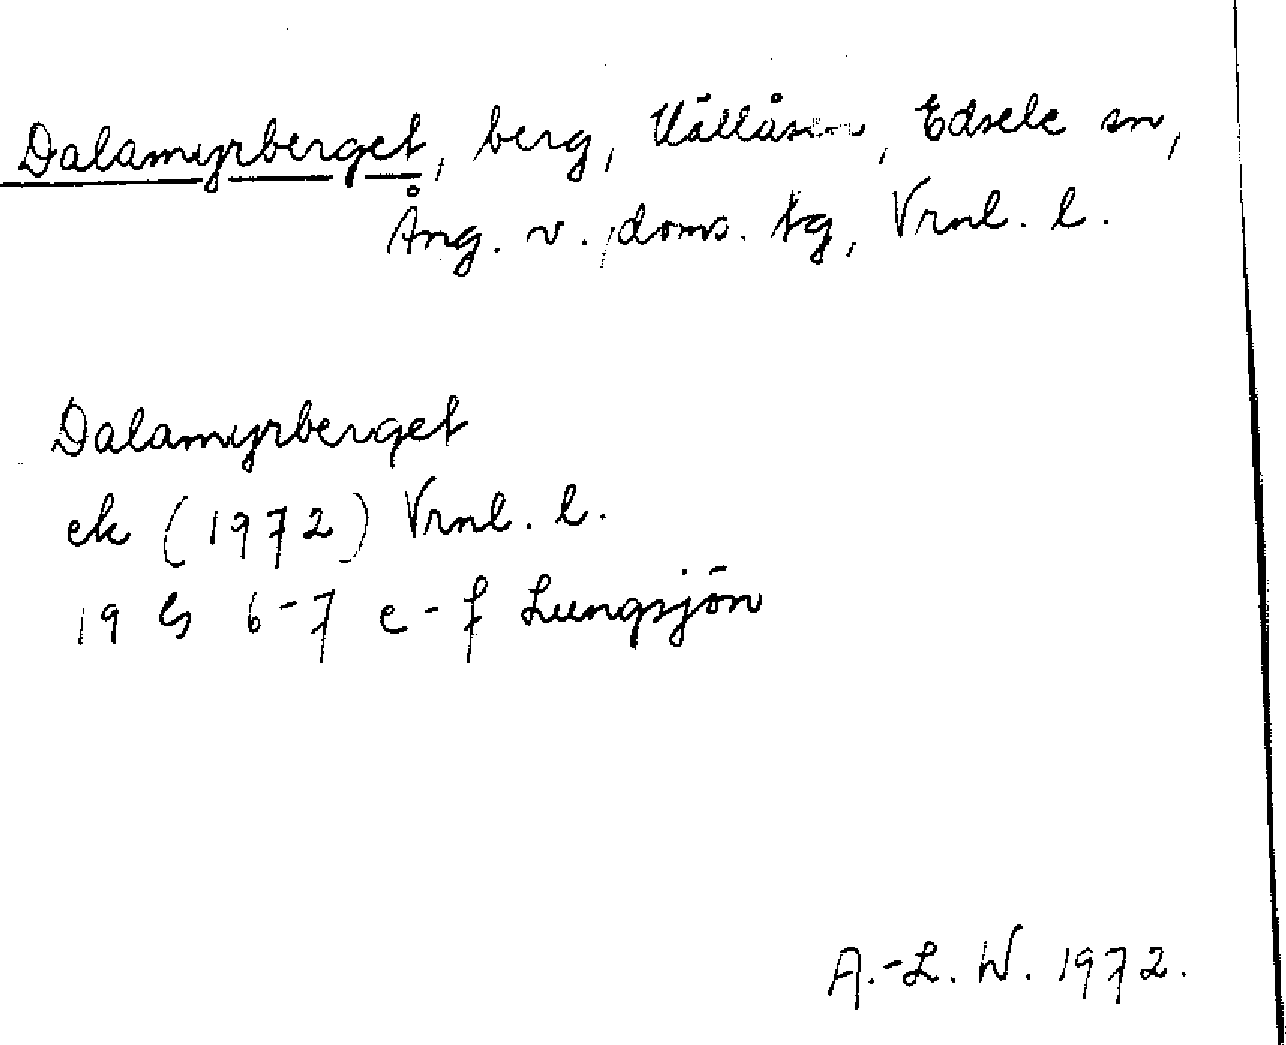 Dalamyrberget, berg, Vällåsen, Edsele sn,
Ång. v. doms. tg, Vrnl. l.
Dalamyrberget
ek (1972) Vrnl. l.
19 G 6-7 e-f Lungsjön
A.-L. W. 1972.